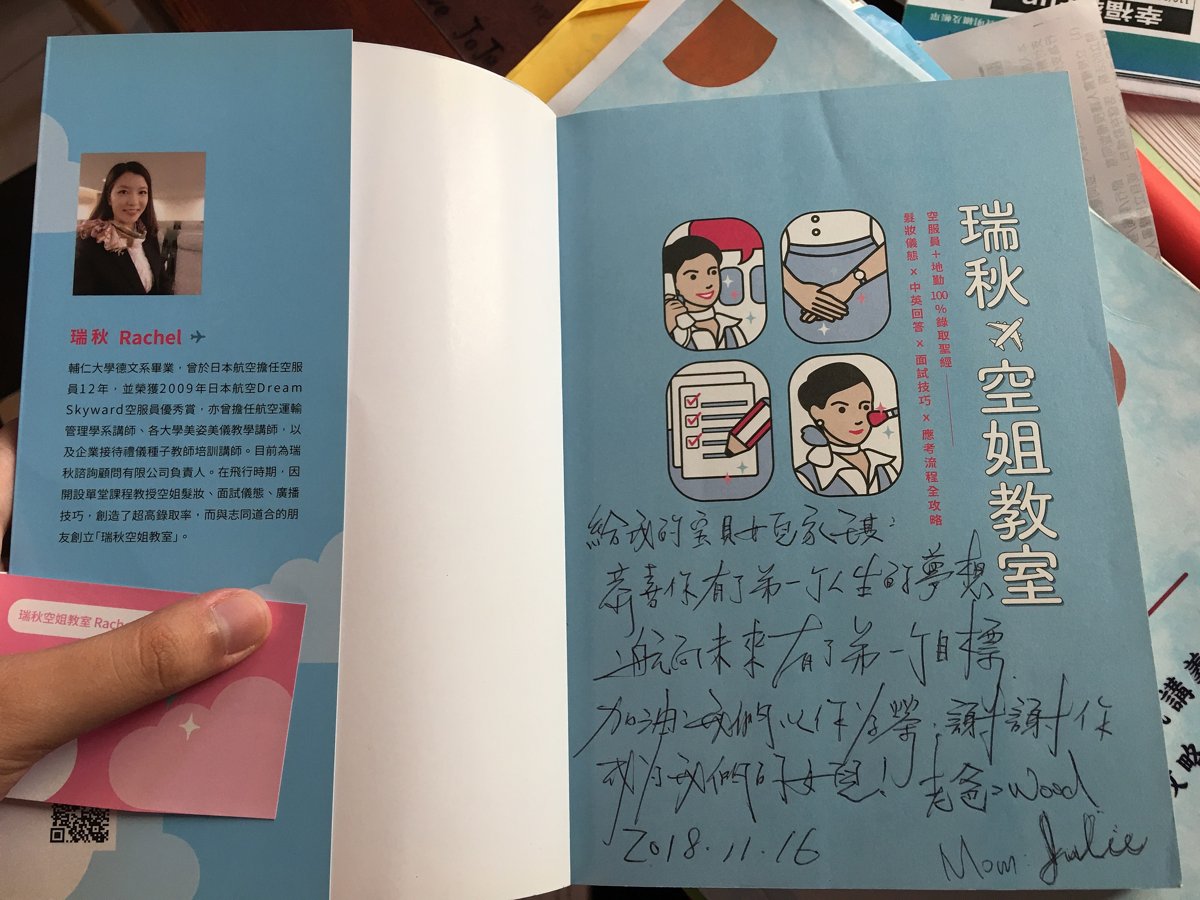 瑞秋 Rachel
輔仁大學德文系畢業，曾於日本航空擔任空服
員12年，並榮獲2009年日本航空Dream
Skyward空服員優秀賞，亦曾擔任航空運輸
管理學系講師、各大學美姿美儀教學講師，以
及企業接待禮儀種子教師培訓講師。目前為瑞
秋諮詢顧問有限公司負責人。在飛行時期，因
開設單堂課程教授空姐髮妝、面試儀態、廣播
技巧，創造了超高錄取率，而與志同道合的朋
友創立「瑞秋空姐教室」。
瑞秋空姐教室 Rach
瑞秋空姐教室
空服員＋地勤 100%錄取聖經
髮妝儀態 x 中英回答 x 面試技巧 x 應考流程全攻略
給我的宝貝女兒家琪：
恭喜你有了第一个人生的夢想
航向未來有了第一个目標
加油！我們以你为榮，謝謝你
成为我們的女兒！老爸：Wood
2018.11.16
Mom Julie
幸福
講義
攻略